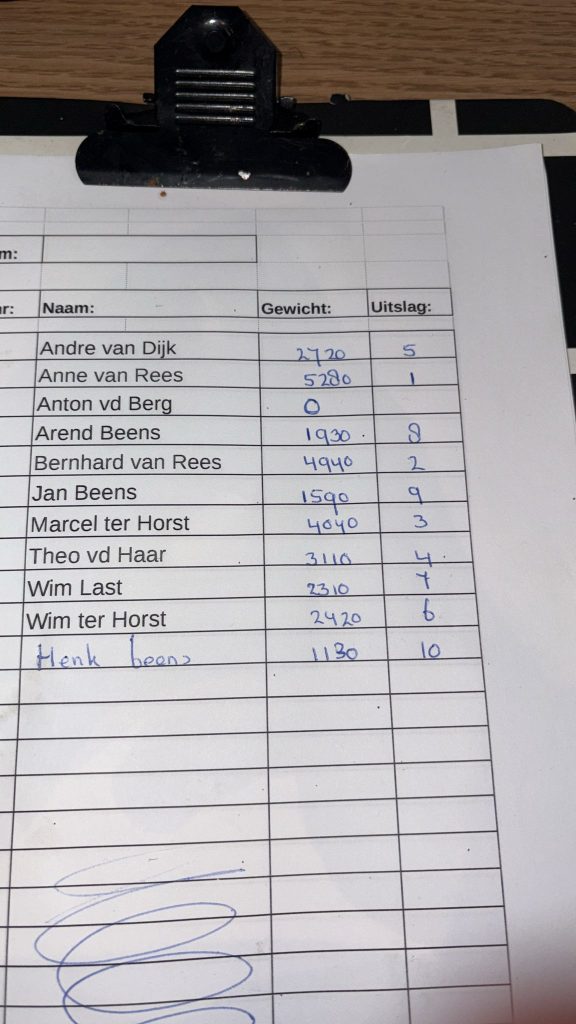 m:
r: Naam: Gewicht: Uitslag:
Andre van Dijk 2720 5
Anne van Rees 5280 1
Anton vd Berg 0
Arend Beens 1930 8
Bernhard van Rees 4940 2
Jan Beens 1590 9
Marcel ter Horst 4040 3
Theo vd Haar 3110 4
Wim Last 2310 7
Wim ter Horst 2420 6
Henk beens 1130 10